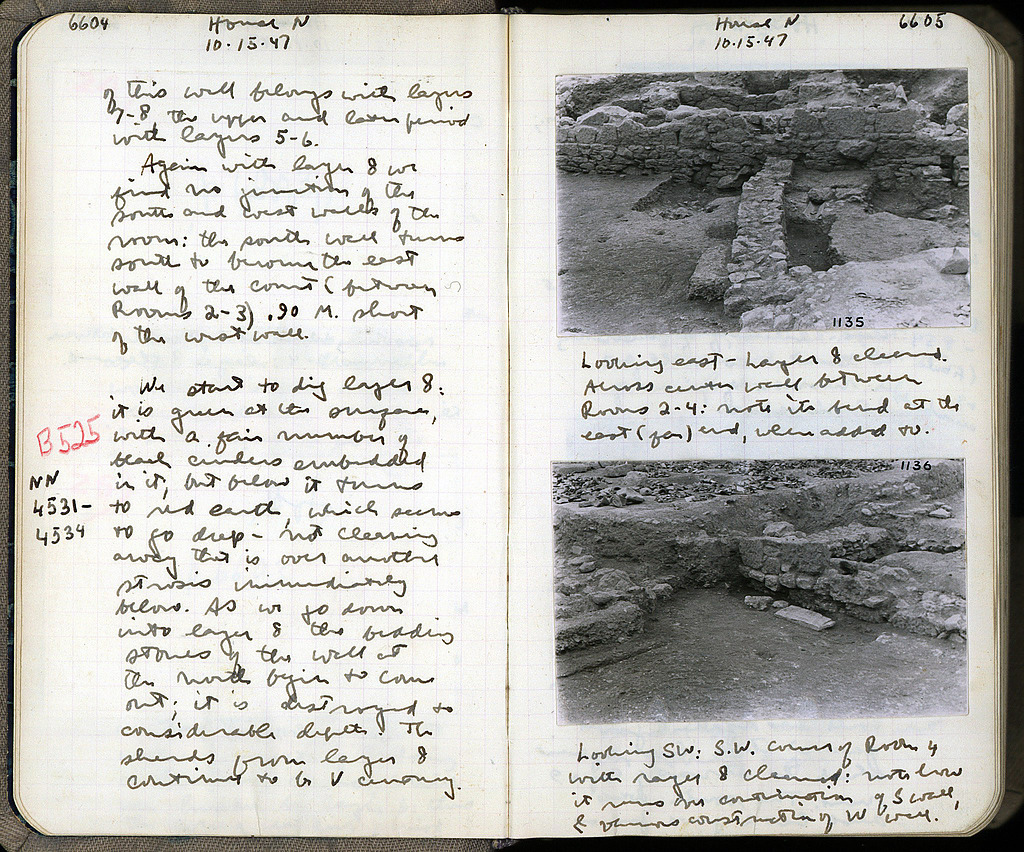 6604
House N
10·15·47
of this wall belongs with layers
7-8, the upper and later period
with layers 5-6.
Again with layer 8 we
find no junction of the
south and west walls of the
room: the south wall turns
south to become the east
wall of the court (between
Rooms 2-3) .90 M. short
of the west wall.
We start to dig layer 8:
it is green at its surface,
with a fair number of
black cinders embedded
in it, but below it turns
to red earth, which seems
to go deep - not cleaning
away that is over another
strosis immediately
below. As we go down
into layer 8 the bedding
stones of the wall at
the north begin to come
out; it is destroyed to
considerable depth. The
sherds from layer 8
continue to be V century.
B525
NN
4531-
4534
House N
10·15·47
6605
1135
Looking east - Layer 8 cleared.
Across center wall between
Rooms 2-4: note its bend at the
east (far) end, when added to.
1136
Looking SW: S.W. corner of Room 4
with layer 8 cleared: note how
it runs over continuation of S wall,
& various construction of W wall.